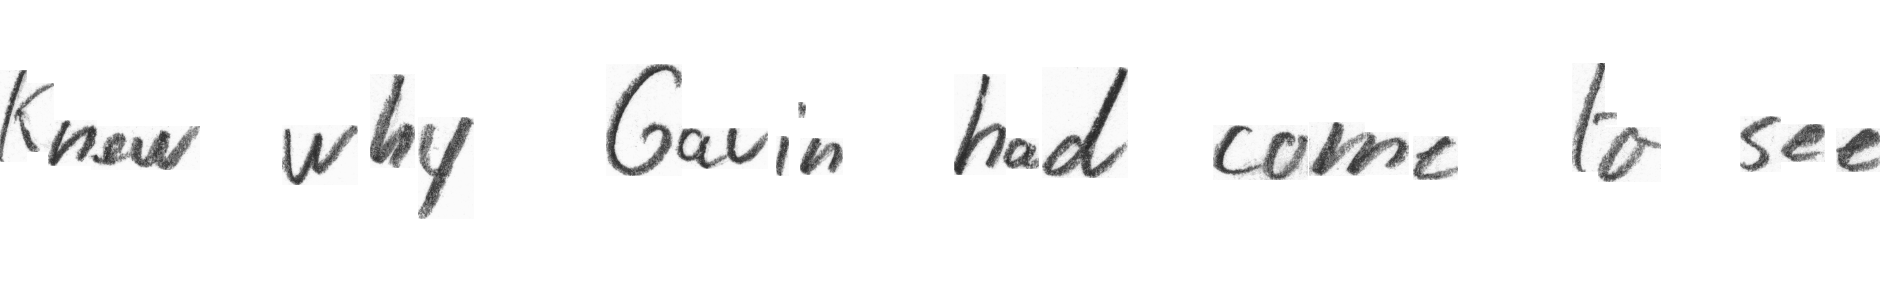 Knew why Gavin had come to see